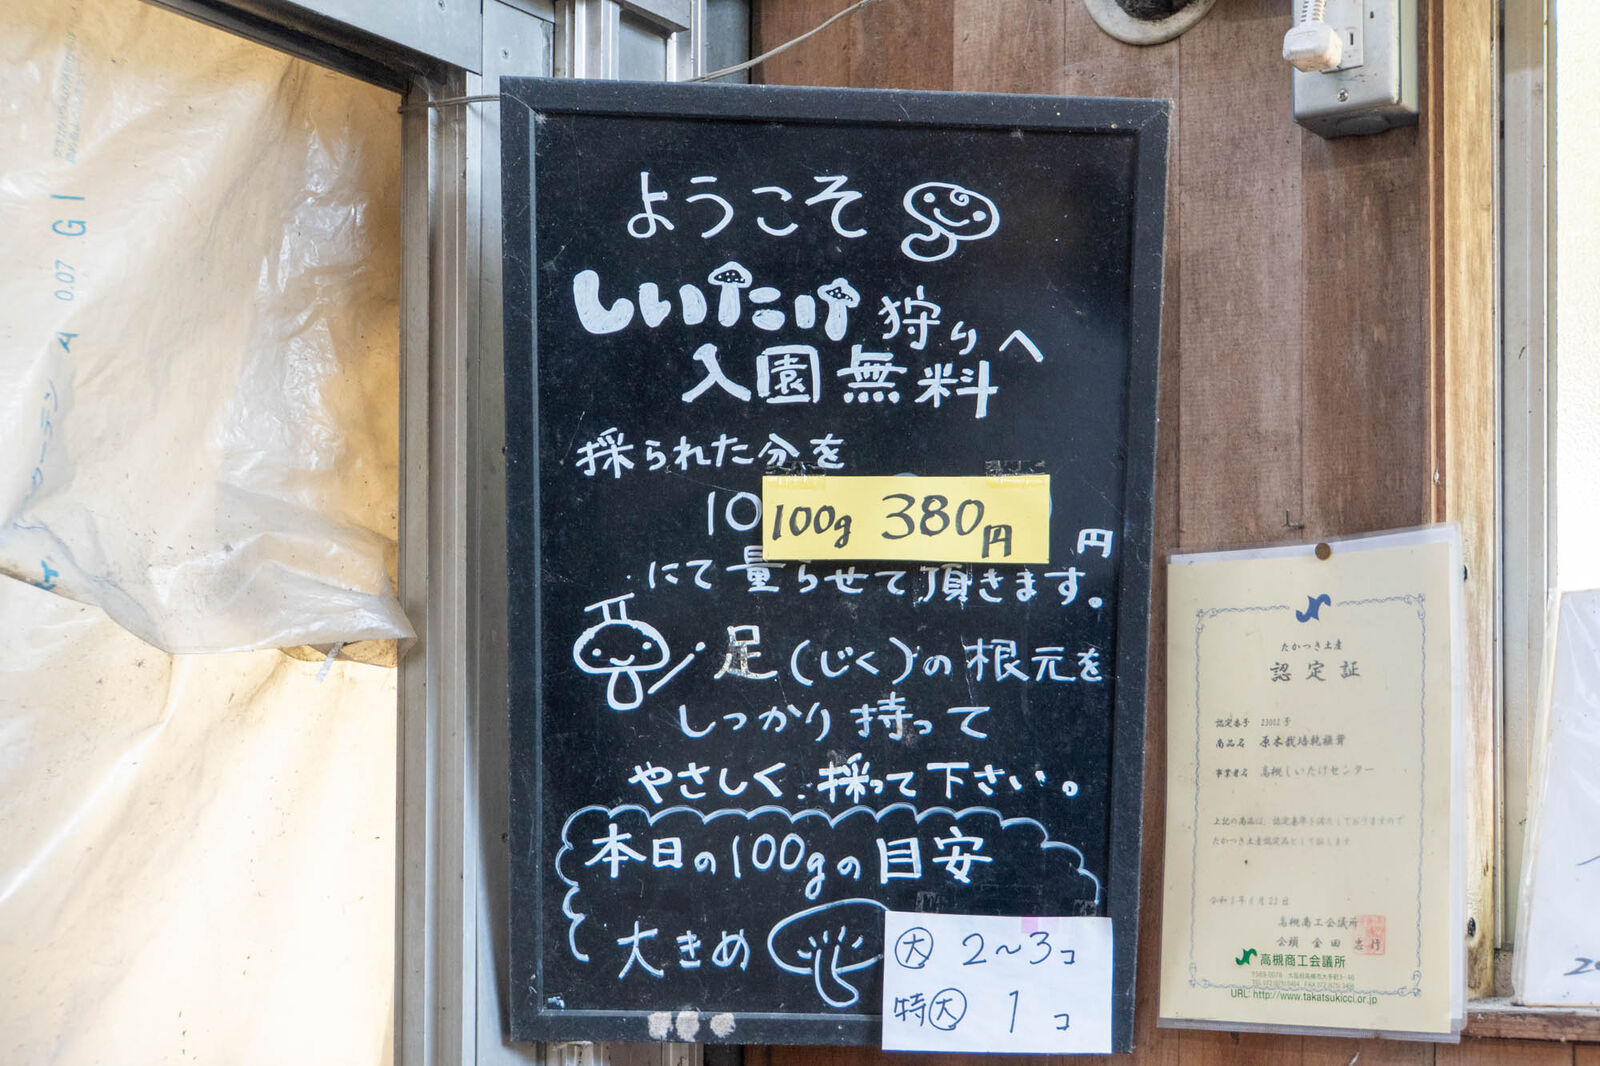 ようこそ
しいたけ狩りへ
入園無料
採られた分を
10
100g 380円
円
にて量らせて頂きます。
足(じく)の根元を
しっかり持って
やさしく採って下さい。
本日の100gの目安
大きめ
大 2~3コ
特大 1コ
たかつき土産
認定証
認定番号
商品名 原木栽培乾椎茸
事業者名 高槻しいたけセンター
上記の商品は、認定基準を満たしておりますので
たかつき土産認定品として証します
高槻商工会議所
会頭 金田忠行
高槻商工会議所
URL: http://www.takatsukicci.or.jp
A 0.07 GI